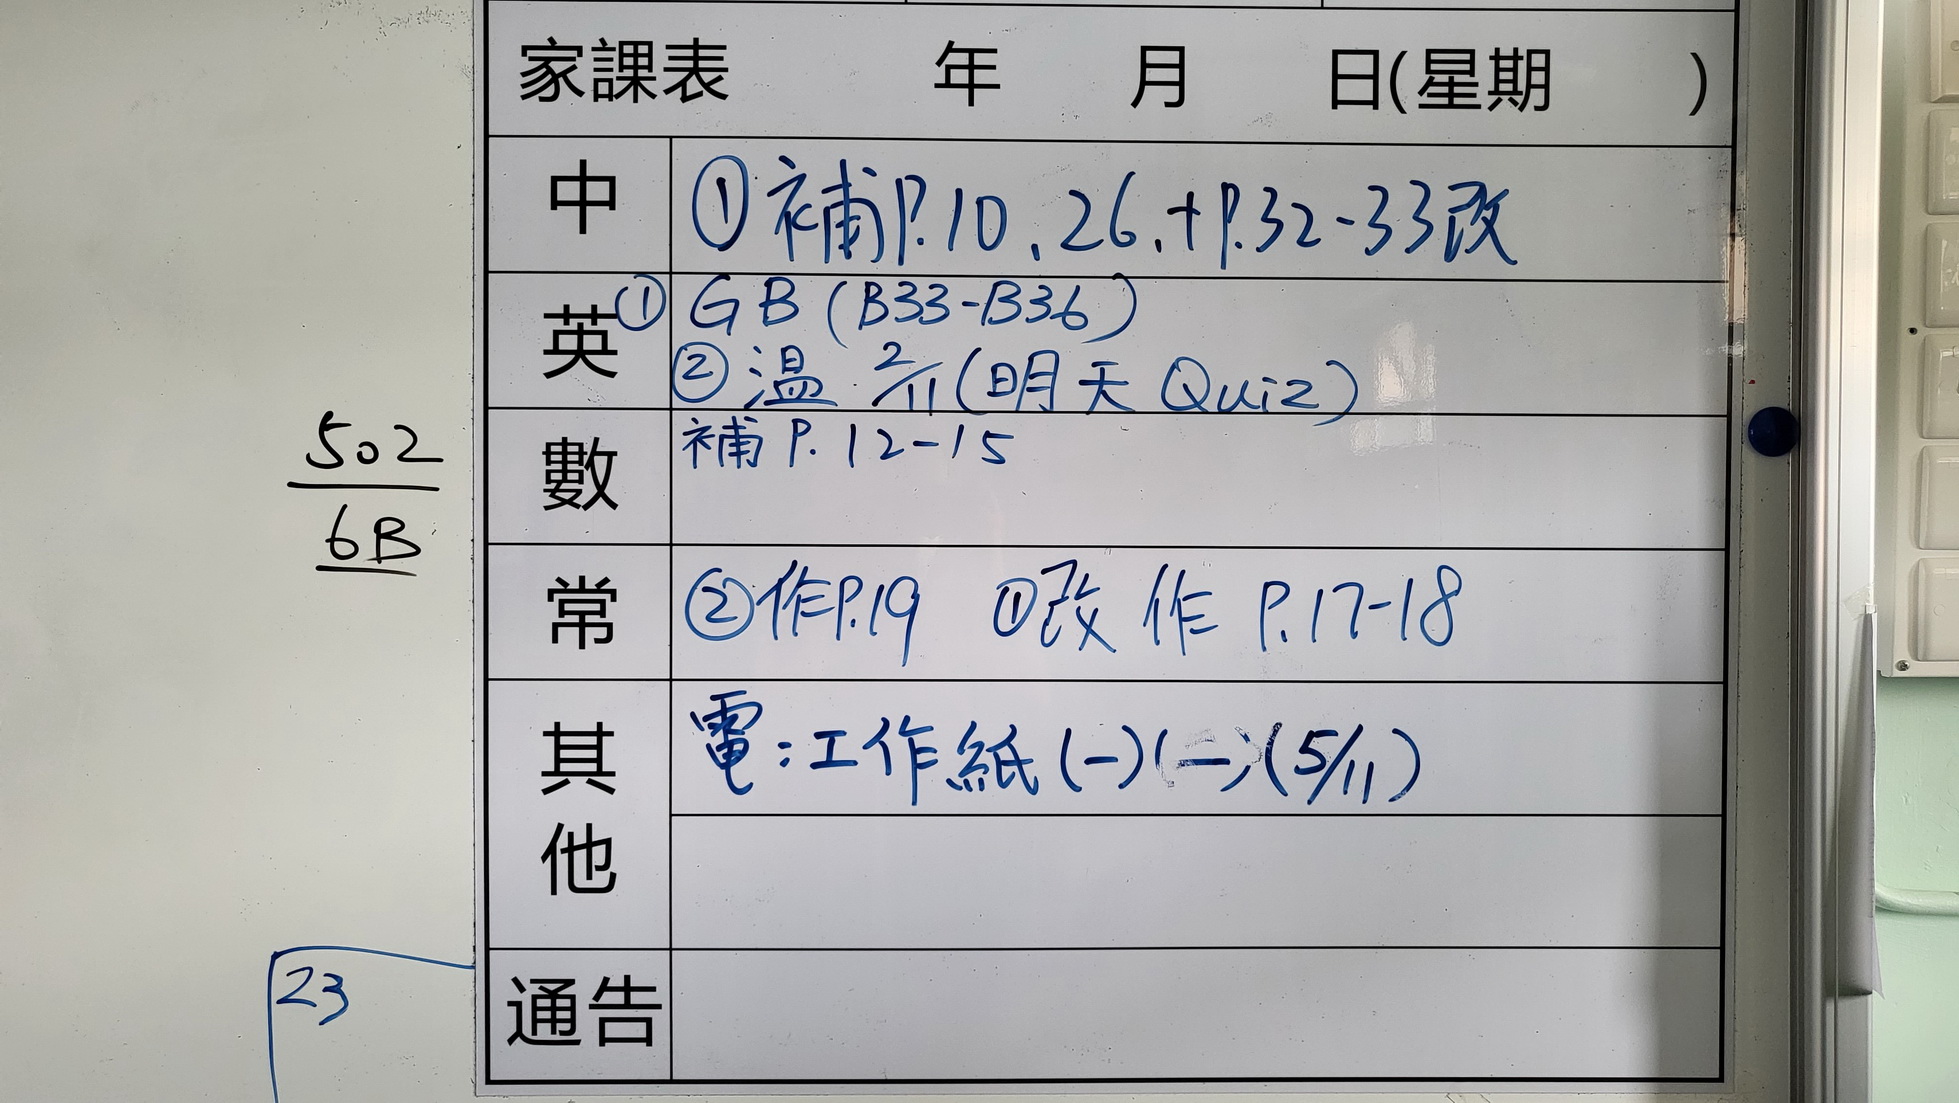 家課表 年 月 日(星期 )
中 ①補P.10、26、+P.32-33改
英 ① GB (B33-B36)
② 溫 2/11 (明天 Quiz)
數 補 P.12-15
常 ②作P.19 ①改 作 P.17-18
其他 電:工作紙(一)(二)(5/11)
通告
502
6B
23